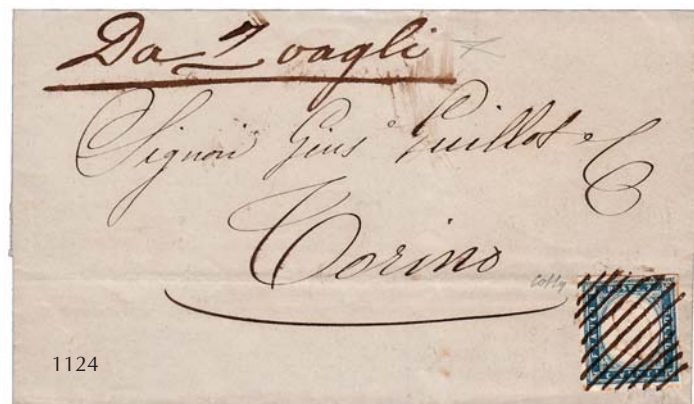 Da Zoagli
Signori Gius° Guillot e C
Torino
1124